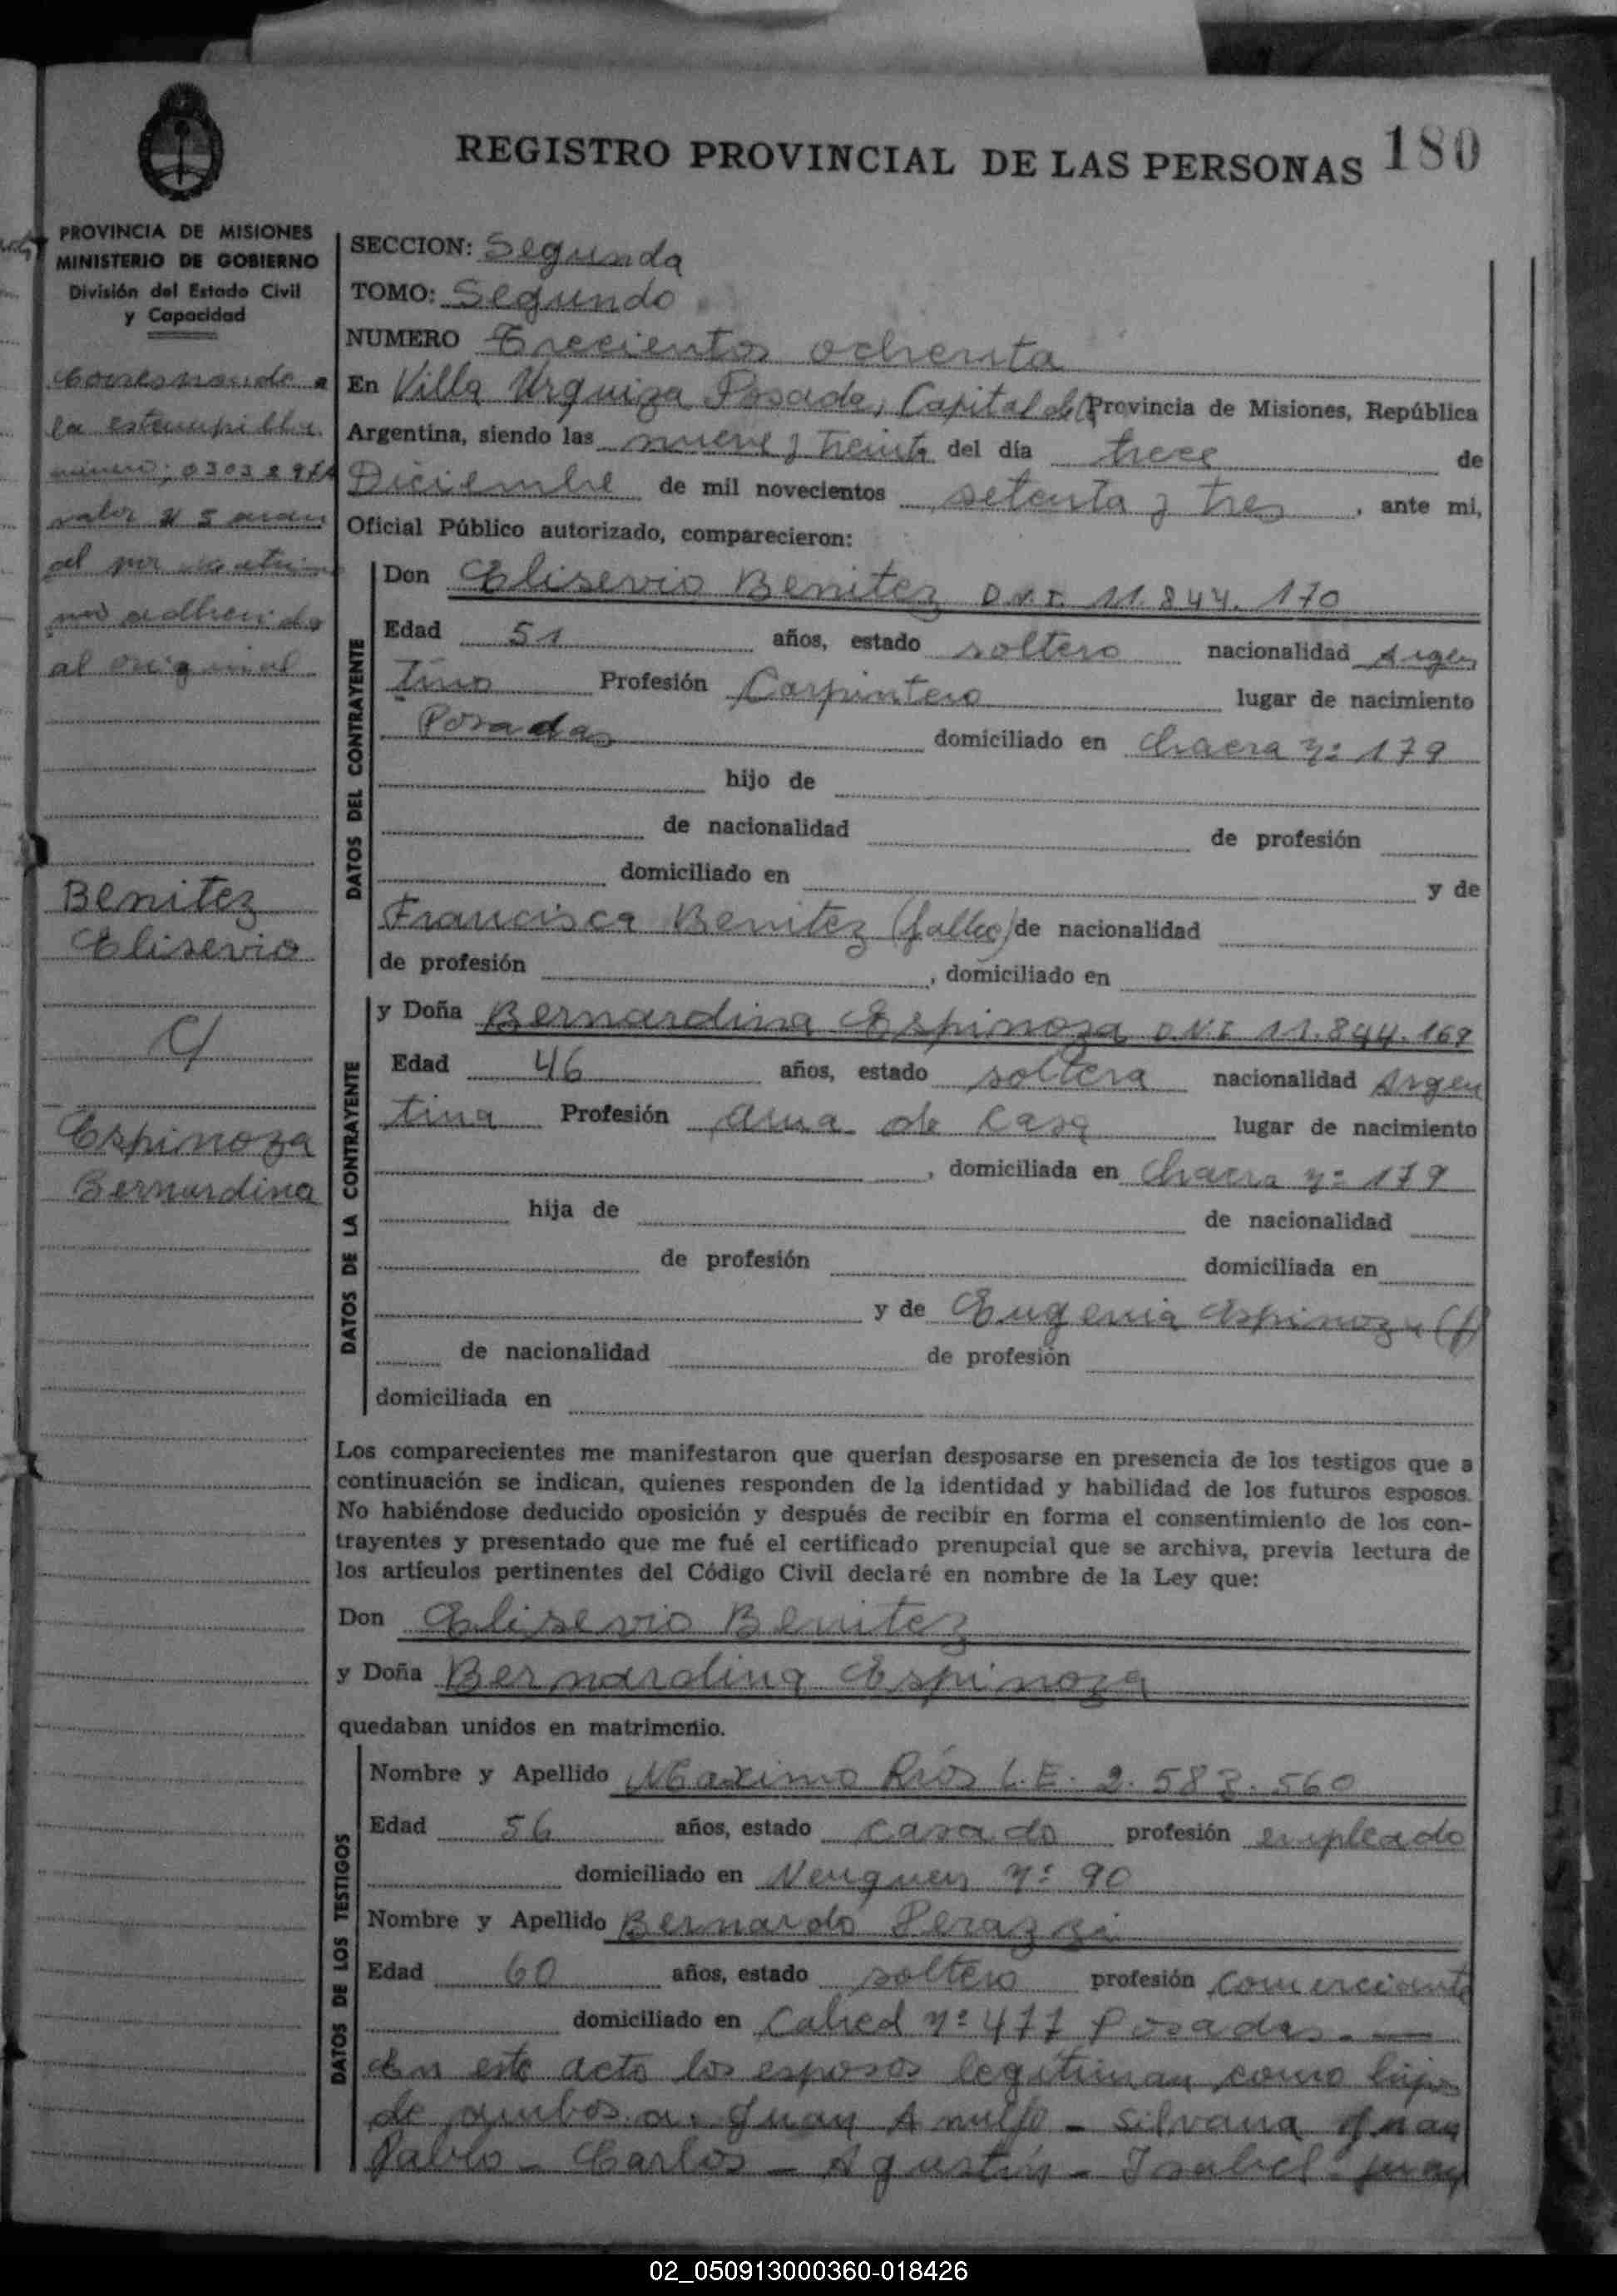 REGISTRO PROVINCIAL DE LAS PERSONAS 180
PROVINCIA DE MISIONES
MINISTERIO DE GOBIERNO
División del Estado Civil
y Capacidad
Corresponde a
la estampilla
número: 03038
valor $ 5
al por matrimo
nio adherida
al original
Benitez
Eliservio
c/
Espinoza
Bernardina
SECCION: Segunda
TOMO: Segundo
NUMERO Trecientos ochenta
En Villa Urquiza Posadas, Capital de la Provincia de Misiones, República
Argentina, siendo las nueve y treinta del día trece de
Diciembre de mil novecientos setenta y tres, ante mi,
Oficial Público autorizado, comparecieron:
DATOS DEL CONTRAYENTE
Don Eliservio Benitez D.N.I. 11.844.170
Edad 51 años, estado soltero nacionalidad Argen
tino Profesión Carpintero lugar de nacimiento
Posadas domiciliado en Chacra nº 179
hijo de
de nacionalidad de profesión
domiciliado en y de
Francisca Benitez (fallec) de nacionalidad
de profesión , domiciliado en
DATOS DE LA CONTRAYENTE
y Doña Bernardina Espinoza D.N.I 11.844.169
Edad 46 años, estado soltera nacionalidad Argen
tina Profesión ama de casa lugar de nacimiento
, domiciliada en Chacra nº 179
hija de de nacionalidad
de profesión domiciliada en
y de Eugenia Espinoza (f)
de nacionalidad de profesión
domiciliada en
Los comparecientes me manifestaron que querían desposarse en presencia de los testigos que a
continuación se indican, quienes responden de la identidad y habilidad de los futuros esposos.
No habiéndose deducido oposición y después de recibir en forma el consentimiento de los con-
trayentes y presentado que me fué el certificado prenupcial que se archiva, previa lectura de
los artículos pertinentes del Código Civil declaré en nombre de la Ley que:
Don Eliservio Benitez
y Doña Bernardina Espinoza
quedaban unidos en matrimonio.
DATOS DE LOS TESTIGOS
Nombre y Apellido Maximo Ríos L.E. 2.583.560
Edad 56 años, estado casado profesión empleado
domiciliado en Neuquen nº 90
Nombre y Apellido Bernardo Perazzi
Edad 60 años, estado soltero profesión comerciante
domiciliado en Cabred nº 477 Posadas.—
En este acto los esposos legitiman como hijos
de ambos a: Juan Arnulfo - Silvana Juan
Pablo - Carlos - Agustín - Isabel Juan
02_050913000360-018426